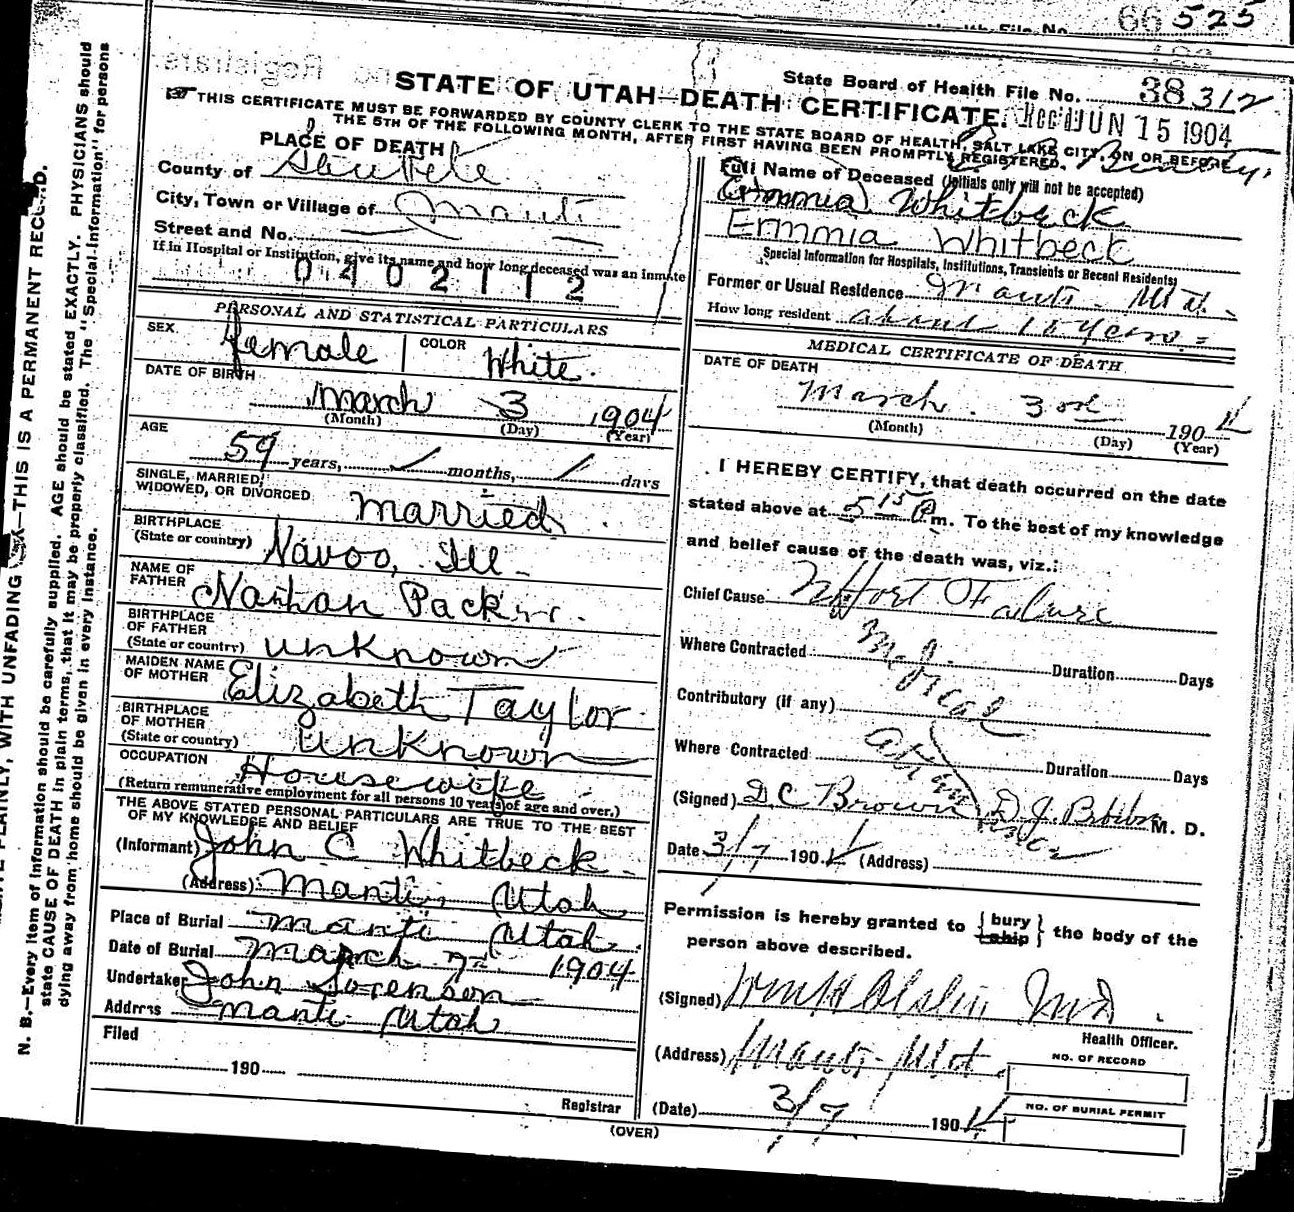 Health File No. 66 525
State Board of Health File No. 38 312
STATE OF UTAH—DEATH CERTIFICATE.
Rec'd JUN 15 1904
THIS CERTIFICATE MUST BE FORWARDED BY COUNTY CLERK TO THE STATE BOARD OF HEALTH, SALT LAKE CITY, ON OR BEFORE
THE 5TH OF THE FOLLOWING MONTH, AFTER FIRST HAVING BEEN PROMPTLY REGISTERED.
PLACE OF DEATH
County of Sanpete
City, Town or Village of Manti
Street and No.
If in Hospital or Institution, give its name and how long deceased was an inmate
0402112
PERSONAL AND STATISTICAL PARTICULARS
SEX. female COLOR White.
DATE OF BIRTH
March 3 1904
(Month) (Day) (Year)
AGE
59 years, months, days
SINGLE, MARRIED,
WIDOWED, OR DIVORCED married
BIRTHPLACE
(State or country) Navoo, Ill
NAME OF
FATHER Nathan Packer.
BIRTHPLACE
OF FATHER
(State or country) unknown
MAIDEN NAME
OF MOTHER Elizabeth Taylor
BIRTHPLACE
OF MOTHER
(State or country) unknown
OCCUPATION Housewife
(Return remunerative employment for all persons 10 years of age and over.)
THE ABOVE STATED PERSONAL PARTICULARS ARE TRUE TO THE BEST
OF MY KNOWLEDGE AND BELIEF
(Informant) John C Whitbeck.
(Address) Manti, Utah
Place of Burial Manti Utah.
Date of Burial March 7th 1904
Undertaker John Sorenson
Address Manti Utah
Filed
190
Registrar
(OVER)
Full Name of Deceased (Initials only will not be accepted)
Emmia Whitbeck
Emmia Whitbeck
Special Information for Hospitals, Institutions, Transients or Recent Residents)
Former or Usual Residence Manti - Utah.
How long resident about 15 years.
MEDICAL CERTIFICATE OF DEATH
DATE OF DEATH
March. 3rd 1904
(Month) (Day) (Year)
I HEREBY CERTIFY, that death occurred on the date
stated above at 5 15 P m. To the best of my knowledge
and belief cause of the death was, viz.:
Chief Cause Hort Failure
Where Contracted Duration Days
Contributory (if any) Medical
Where Contracted Duration Days
(Signed) D C Brown M. D.
Date 3/7 1904 (Address)
Permission is hereby granted to { bury ship } the body of the
person above described.
(Signed) M D.
Health Officer.
(Address) Manti - Utah.
NO. OF RECORD
(Date) 3/7 1904
NO. OF BURIAL PERMIT
N. B.—Every item of information should be carefully supplied. AGE should be stated EXACTLY. PHYSICIANS should
state CAUSE OF DEATH in plain terms, that it may be properly classified. The "Special Information" for persons
dying away from home should be given in every instance.
PLAINLY, WITH UNFADING INK—THIS IS A PERMANENT RECORD.